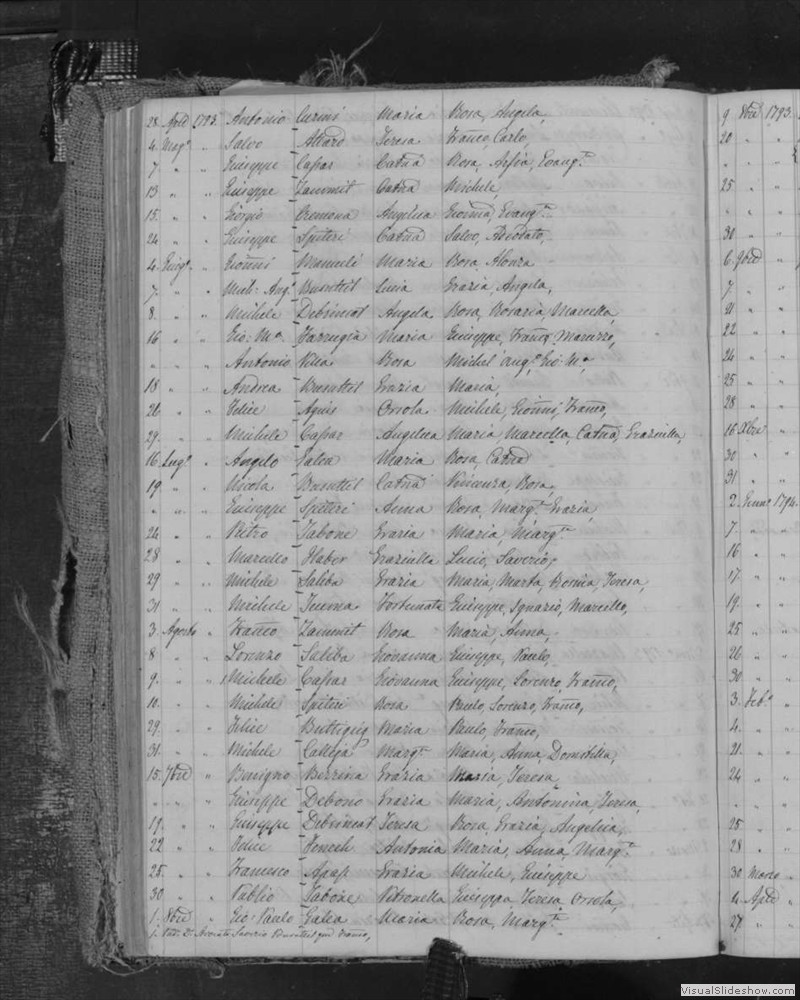 28 Aple 1793. Antonio Curmi Maria Rosa, Angela
4 Magº " Salvo Attard Teresa Franco, Carlo,
7 " " Giuseppe Caspar Catna Rosa, Evang.ta
13 " " Giuseppe Zammit Catna Michele,
15 " " Giorgio Cremona Angelica Gionna, Evang.ta
24 " " Giuseppe Spiteri Catna Salvo, Adeodato,
4 Giugº " Gionni Mamuli Maria Rosa
7 " " Mich: Angº Busuttil Lucia Grazia Angela,
8 " " Michele Debrincat Angela Rosa, Rosaria, Marcella,
16 " " Gio: Mª Farrugia Maria Giuseppe, Franco,
" " " Antonio Vella Rosa Michel Angº, Gio: Mª
18 " " Andrea Busuttil Grazia Maria,
26 " " Felice Agius Orsola Michele, Gionni, Franco,
29 " " Michele Caspar Angelica Maria, Marcella, Catna Graziulla
16 Lugº " Angelo Galea Maria Rosa, Catna
19 " " Nicola Busuttil Catna Vincenza, Rosa,
" " " Giuseppe Spiteri Anna Rosa, Margta Grazia,
24 " " Pietro Tabone Grazia Maria, Margta
28 " " Marcello Haber Graziulla Lucio, Saverio,
29 " " Michele Saliba Grazia Maria, Marta, Teresa,
31 " " Michele Fortunata Giuseppe, Ignazio, Marcello,
3 Agosto " Franco Zammit Rosa Maria, Anna,
8 " " Lorenzo Saliba Giovanna Giuseppe, Paulo,
9 " " Michele Caspar Giovanna Giuseppe, Lorenzo, Franco,
10 " " Michele Spiteri Rosa Paulo, Lorenzo, Franco,
29 " " Felice Buttigieg Maria Paulo, Franco,
31 " " Michele Calleja Margta Maria, Anna, Domitilla,
15 7bre " Benigno Bezzina Grazia Maria, Teresa
" " " Giuseppe Debono Grazia Maria, Antonina, Teresa,
19 " " Giuseppe Debrincat Teresa Rosa, Grazia, Angelica,
22 " " Felice Fenech Antonia Maria, Anna, Margta
25 " " Francesco Agius Grazia Michele, Giuseppe
30 " " Publio Tabone Petronella Giuseppa, Teresa, Orsola,
1 8bre " Gio Paulo Galea Maria Rosa, Margta
Saverio Busuttil Franco,
9 8bre 1793
20 " "
" " "
25 " "
" " "
30 " "
6 9bre "
7 " "
21 " "
22 " "
24 " "
25 " "
28 " "
16 Xbre "
30 " "
31 " "
2 Gennº 1794
7 " "
16 " "
17 " "
19 " "
25 " "
26 " "
30 " "
3 Febº "
4 " "
21 " "
24 " "
" " "
25 " "
28 " "
30 Marzo "
4 Aple "
27 " "
VisualSlideshow.com